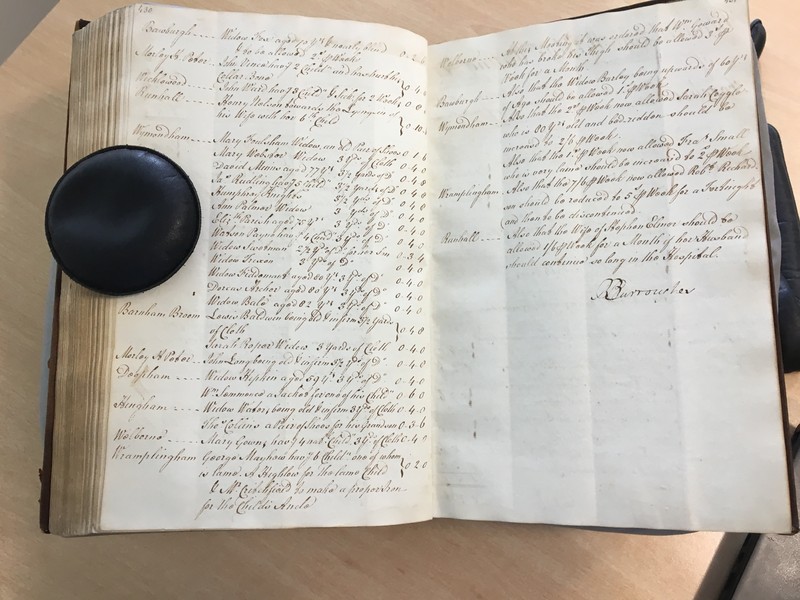 430
Bawburgh Widow Fra: aged 70 Y.rs & nearly blind
to be allowed 2.s P Week
Morley St. Peter John Vincent hav.g 2 Child.n and has hurt his
Collar Bone
Wicklewood John Ward hav.g 3 Child. & Sick for 2 Weeks 0 6 0
Runhall Henry Nelson towards the Lyingin of
his Wife with her 6.th Child 0 10
Wymondham Mary Fordsham Widow, an old Pair of Shoes 0 1 6
Mary Webster Widow 3 Y.ds of Cloth 0 4 0
David Minns aged 77 Y.rs 3½ Yards of D.o 0 4 8
Ja.s Rudling hav.g 5 Child.n 3½ Yards of D.o 0 4 8
Humphrey Knights 3½ Y.ds of D.o 0 4 8
Ann Palmer Widow 3 Yards of D.o 0 4 0
Eliz.th Parish aged 75 Y.rs 3 Y.ds of D.o 0 4 0
Watson Payn hav.g 4 Child. 3 Y.ds of D.o 0 4 0
Widow Swatman 2½ Y.ds of D.o for her Son 0 3 4
Widow Tizon 3 Y.ds of D.o 0 4 0
Widow Fiddament aged 80 Y.rs 3 Y.ds of D.o 0 4 0
Dorcas Archer aged 80 Y.rs 3 Y.ds of D.o 0 4 0
Widow Bale aged 82 Y.rs 3 Y.ds of D.o 0 4 0
Barnham Broom Lewis Baldwin being old & infirm 3½ Yards
of Cloth 0 4 8
Sarah Roper Widow 3 Yards of Cloth 0 4 0
Morley St. Peter John Long being old & infirm 3½ Y.ds of D.o
Deopham Widow Hipkin aged 59 Y.rs 3 Y.ds of D.o 0 4 0
W.m Sammonds a Jacket for one of his Child.n 0 6 0
Hingham Widow Water, being old & infirm 3 Y.ds of Cloth 0 4 0
Tho.s Collins a Pair of Shoes for his Grandson 0 3 6
Welborne Mary Gowen, hav.g 4 small Child.n 3 Y.ds of Cloth 0 4 0
Kramplingham George Mayhew hav.g 6 Child.n one of whom
is lame. A Highlow for the lame Child 0 2 0
& Mr. Critchfield to make a proper Iron
for the Childs Ancle
Welborne At this Meeting it was ordered that W.m Coward
who has broke his Thigh should be allowed 3.s P
Week for a Month
Bawburgh Also that the Widow Barley being upwards of 60 Y.rs
of Age should be allowed 1.s P Week
Wymondham Also that the 2.s P Week now allowed Sarah
who is 80 Y.rs old and bed-ridden should be
increased to 2/6 P Week.
Also that the 1.s P Week now allowed Fra.s Small
who is very lame should be increased to 2.s P Week
Kramplingham Also that the 7/6 P Week now allowed Rob.t Richard-
son should be reduced to 5.s P Week for a Fortnight
and then to be discontinued
Runhall Also that the Wife of Stephen Elmer should be
allowed 1/6 P Week for a Month if her Husband
should continue so long in the Hospital.
Burroughes